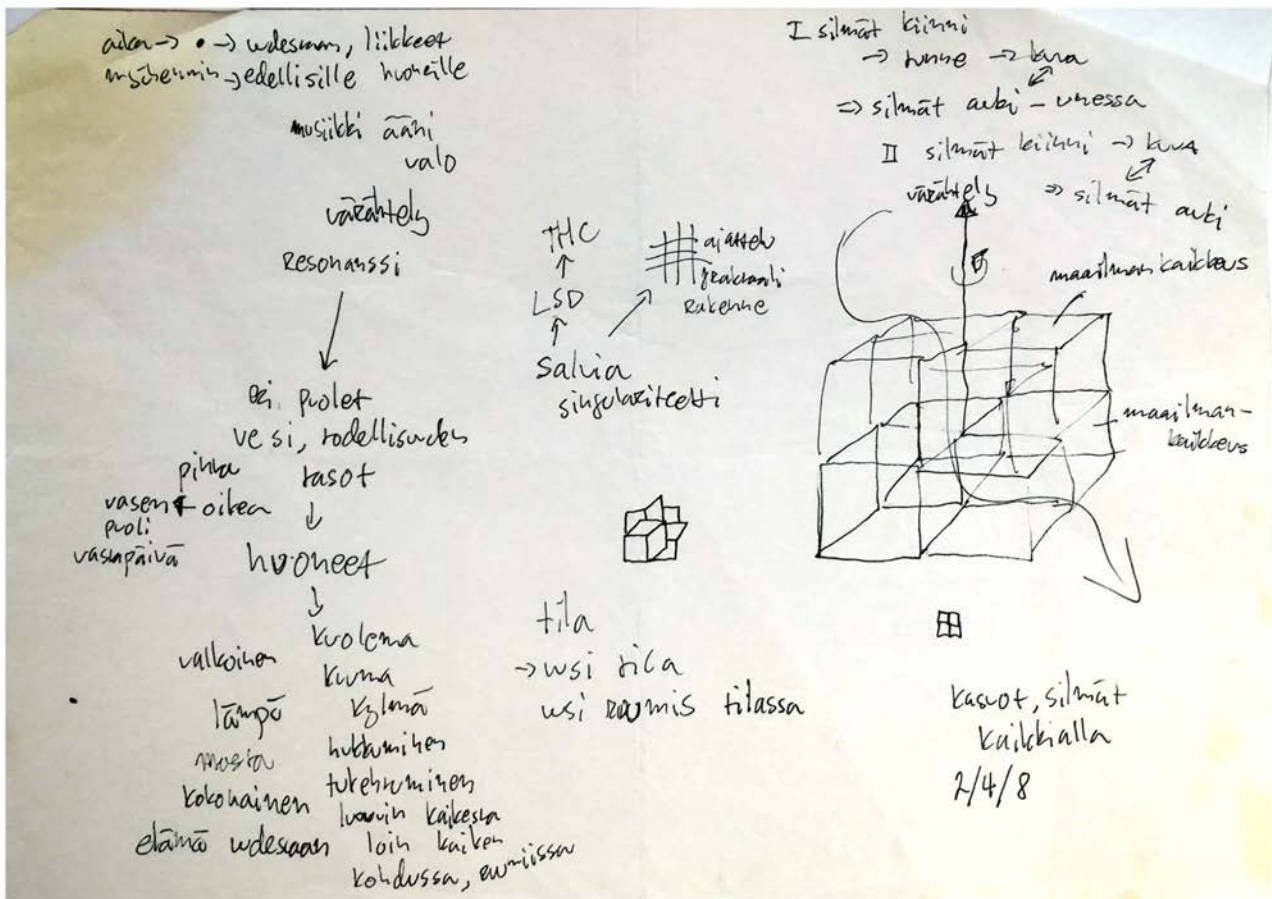 aika → • → uudestaan, liikkeet
→ edellisille huoneille
musiikki ääni
valo
värähtely
Resonanssi
eri puolet
vesi, todellisuuden
tasot
vasen oikea
puoli
vastapäivä
huoneet
kuolema
valkoinen
kuuma
lämpö kylmä
musta hukkuminen
kokonainen tukehtuminen
luovuin kaikesta
elämä uudestaan loin kaiken
kohdussa, ruumiissa
THC
LSD
Salvia
singulariteetti
ajattelu
fraktaali
Rakenne
tila
→ uusi tila
uusi ruumis tilassa
I silmät kiinni
→ tunne → kuva
⇒ silmät auki – unessa
II silmät kiinni → kuva
⇒ silmät auki
värähtely
maailmankaikkeus
maailman-
kaikkeus
kasvot, silmät
kaikkialla
2/4/8